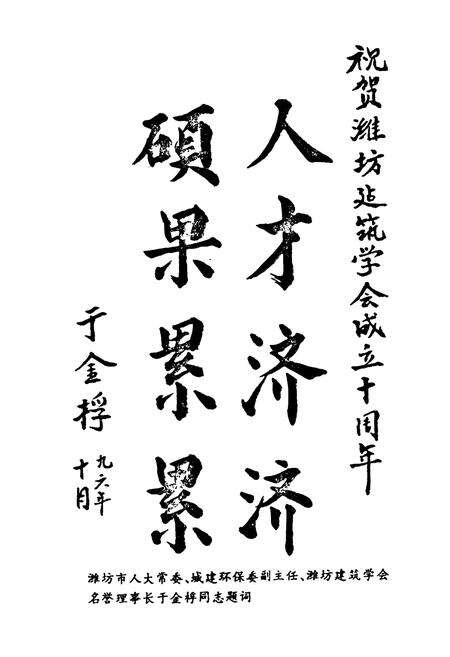 祝贺潍坊建筑学会成立十周年
人才济济
硕果累累
于金桴
九六年
十月
潍坊市人大常委、城建环保委副主任、潍坊建筑学会
名誉理事长于金桴同志题词